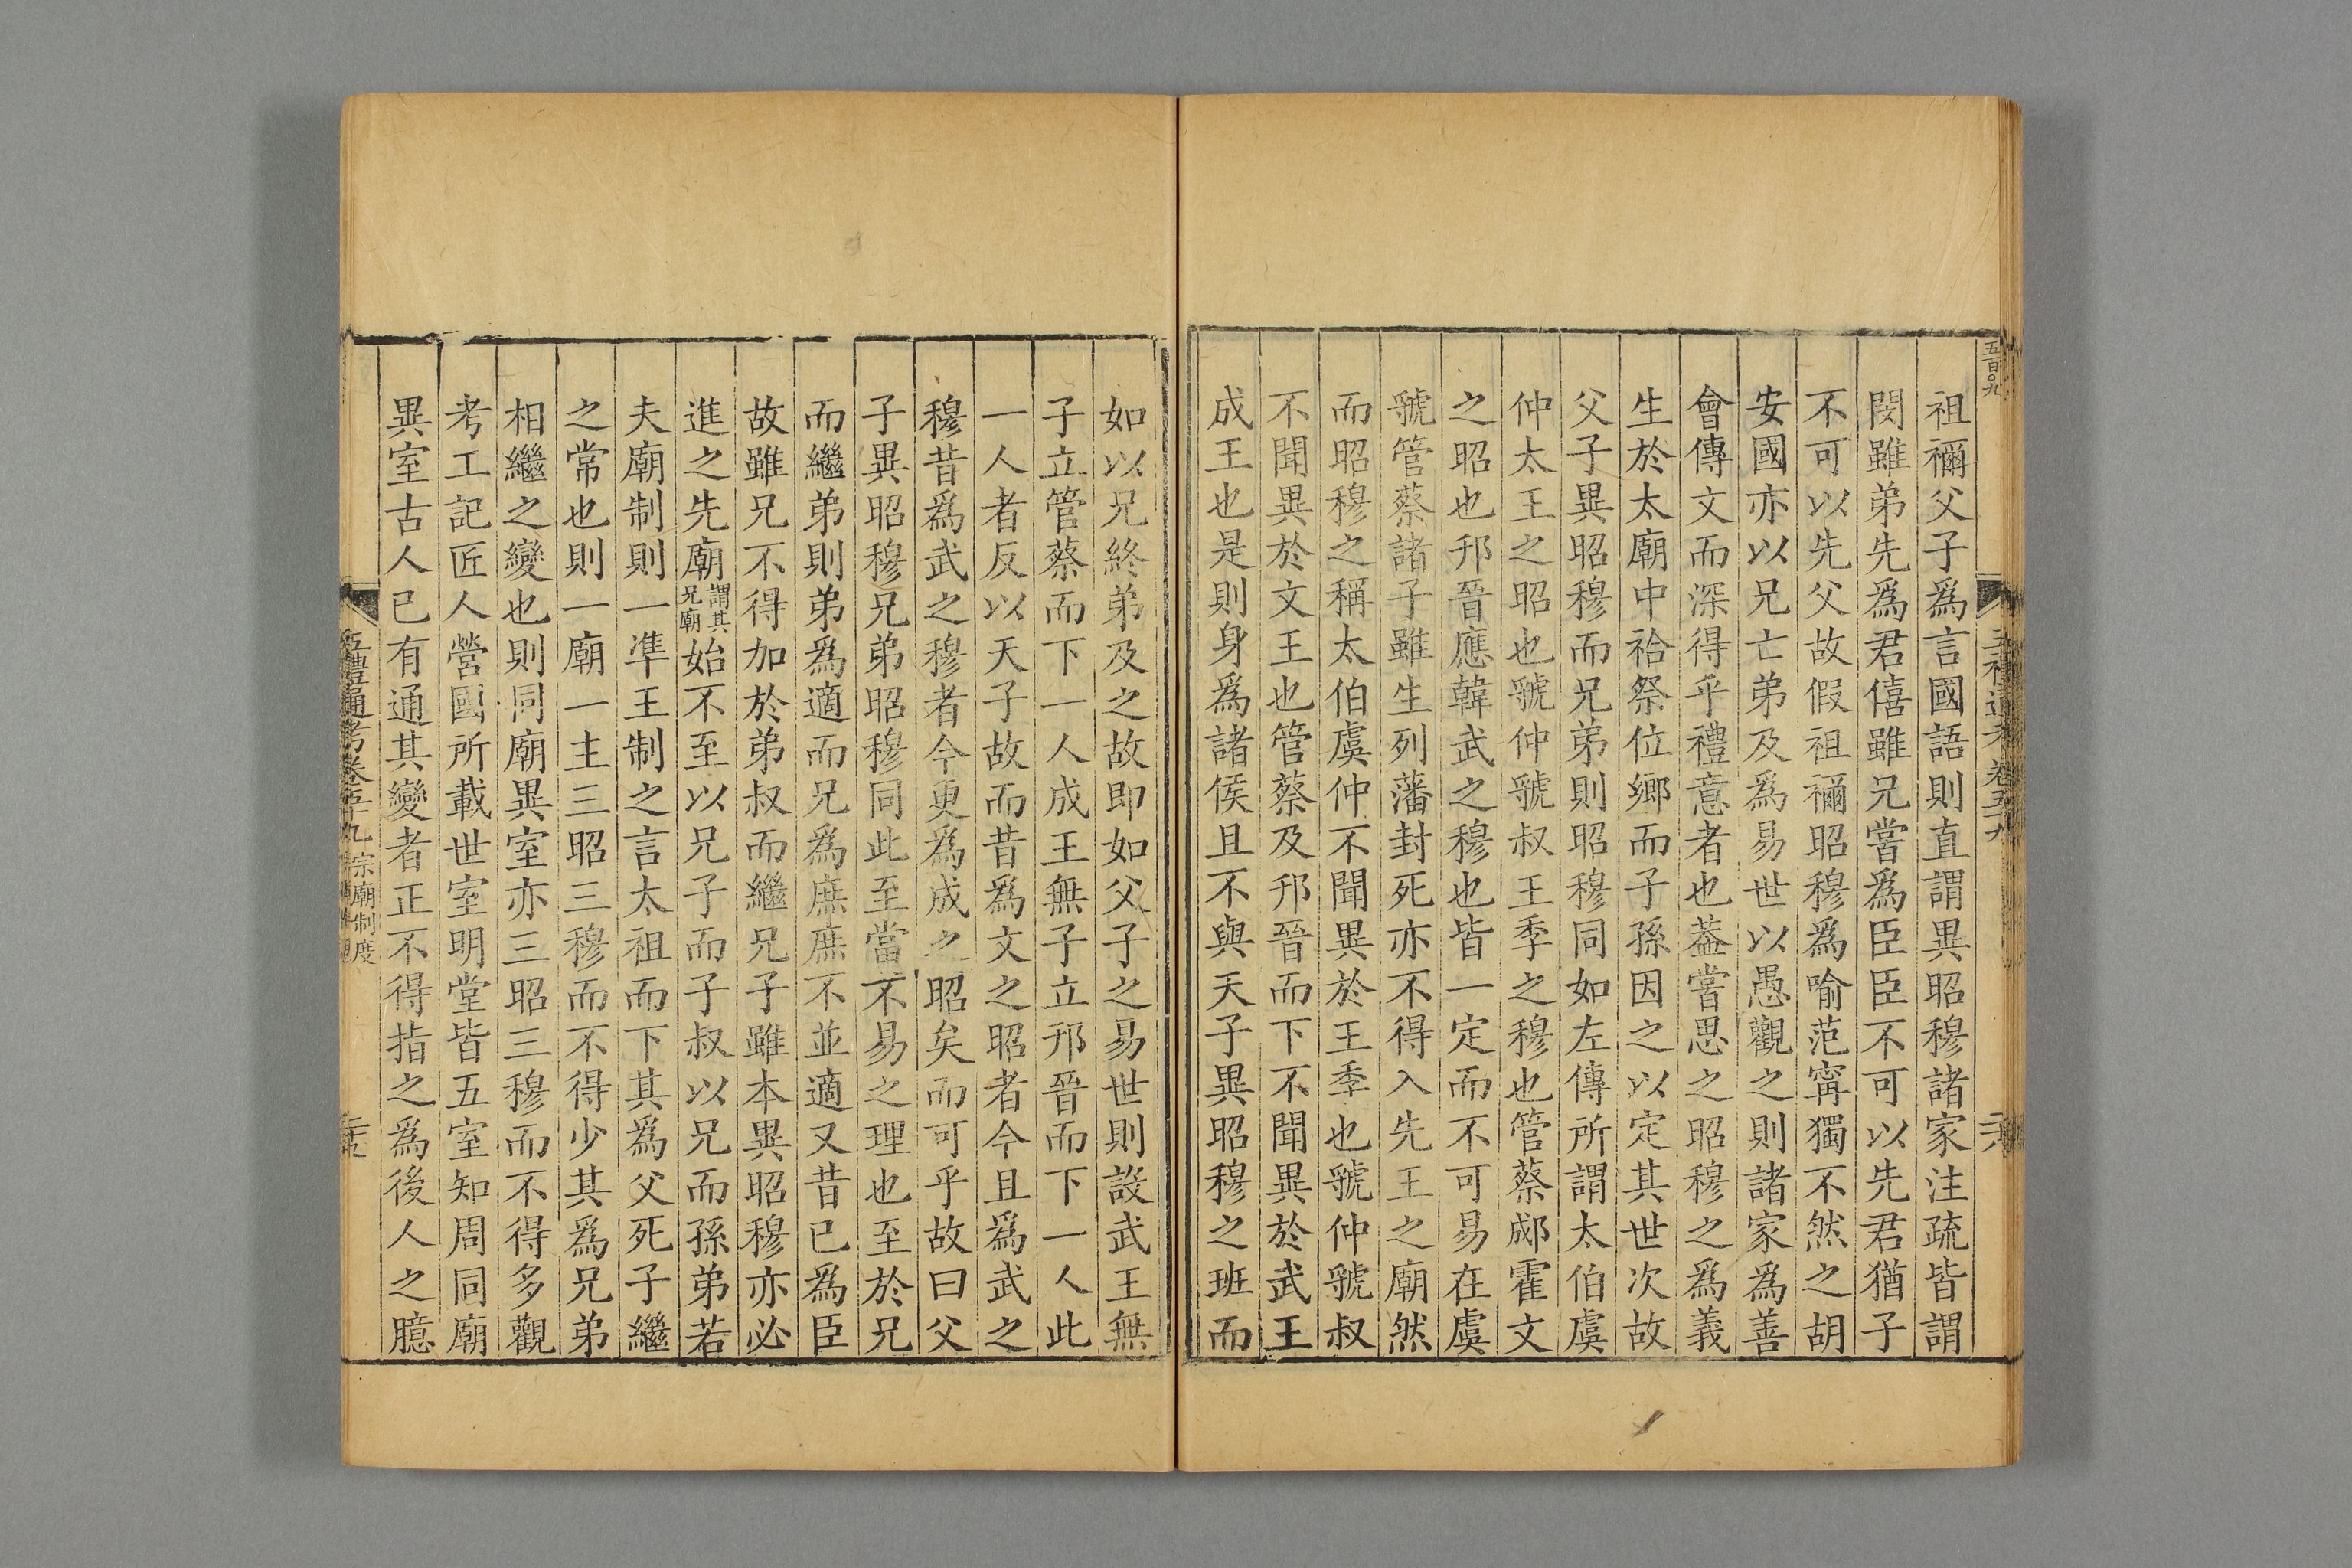 五百〇九
五禮通考卷五十九
祖禰父子爲言國語則直謂異昭穆諸家注疏皆謂
閔雖弟先爲君僖雖兄嘗爲臣臣不可以先君猶子
不可以先父故假祖禰昭穆爲喻范甯獨不然之胡
安國亦以兄亡弟及爲易世以愚觀之則諸家爲善
會傳文而深得乎禮意者也葢嘗思之昭穆之爲義
生於太廟中祫祭位鄉而子孫因之以定其世次故
父子異昭穆而兄弟則昭穆同如左傳所謂太伯虞
仲太王之昭也虢仲虢叔王季之穆也管蔡郕霍文
之昭也邘晉應韓武之穆也皆一定而不可易在虞
虢管蔡諸子雖生列藩封死亦不得入先王之廟然
而昭穆之稱太伯虞仲不聞異於王季也虢仲虢叔
不聞異於文王也管蔡及邘晉而下不聞異於武王
成王也是則身爲諸侯且不與天子異昭穆之班而
如以兄終弟及之故即如父子之易世則設武王無
子立管蔡而下一人成王無子立邘晉而下一人此
一人者反以天子故而昔爲文之昭者今且爲武之
穆昔爲武之穆者今更爲成之昭矣而可乎故曰父
子異昭穆兄弟昭穆同此至當不易之理也至於兄
而繼弟則弟爲適而兄爲庶庶不並適又昔已爲臣
故雖兄不得加於弟叔而繼兄子雖本異昭穆亦必
進之先廟謂其兄廟始不至以兄子而子叔以兄而孫弟若
夫廟制則一準王制之言太祖而下其爲父死子繼
之常也則一廟一主三昭三穆而不得少其爲兄弟
相繼之變也則同廟異室亦三昭三穆而不得多觀
考工記匠人營國所載世室明堂皆五室知周同廟
異室古人已有通其變者正不得指之爲後人之臆
五禮通考卷五十九 宗廟制度